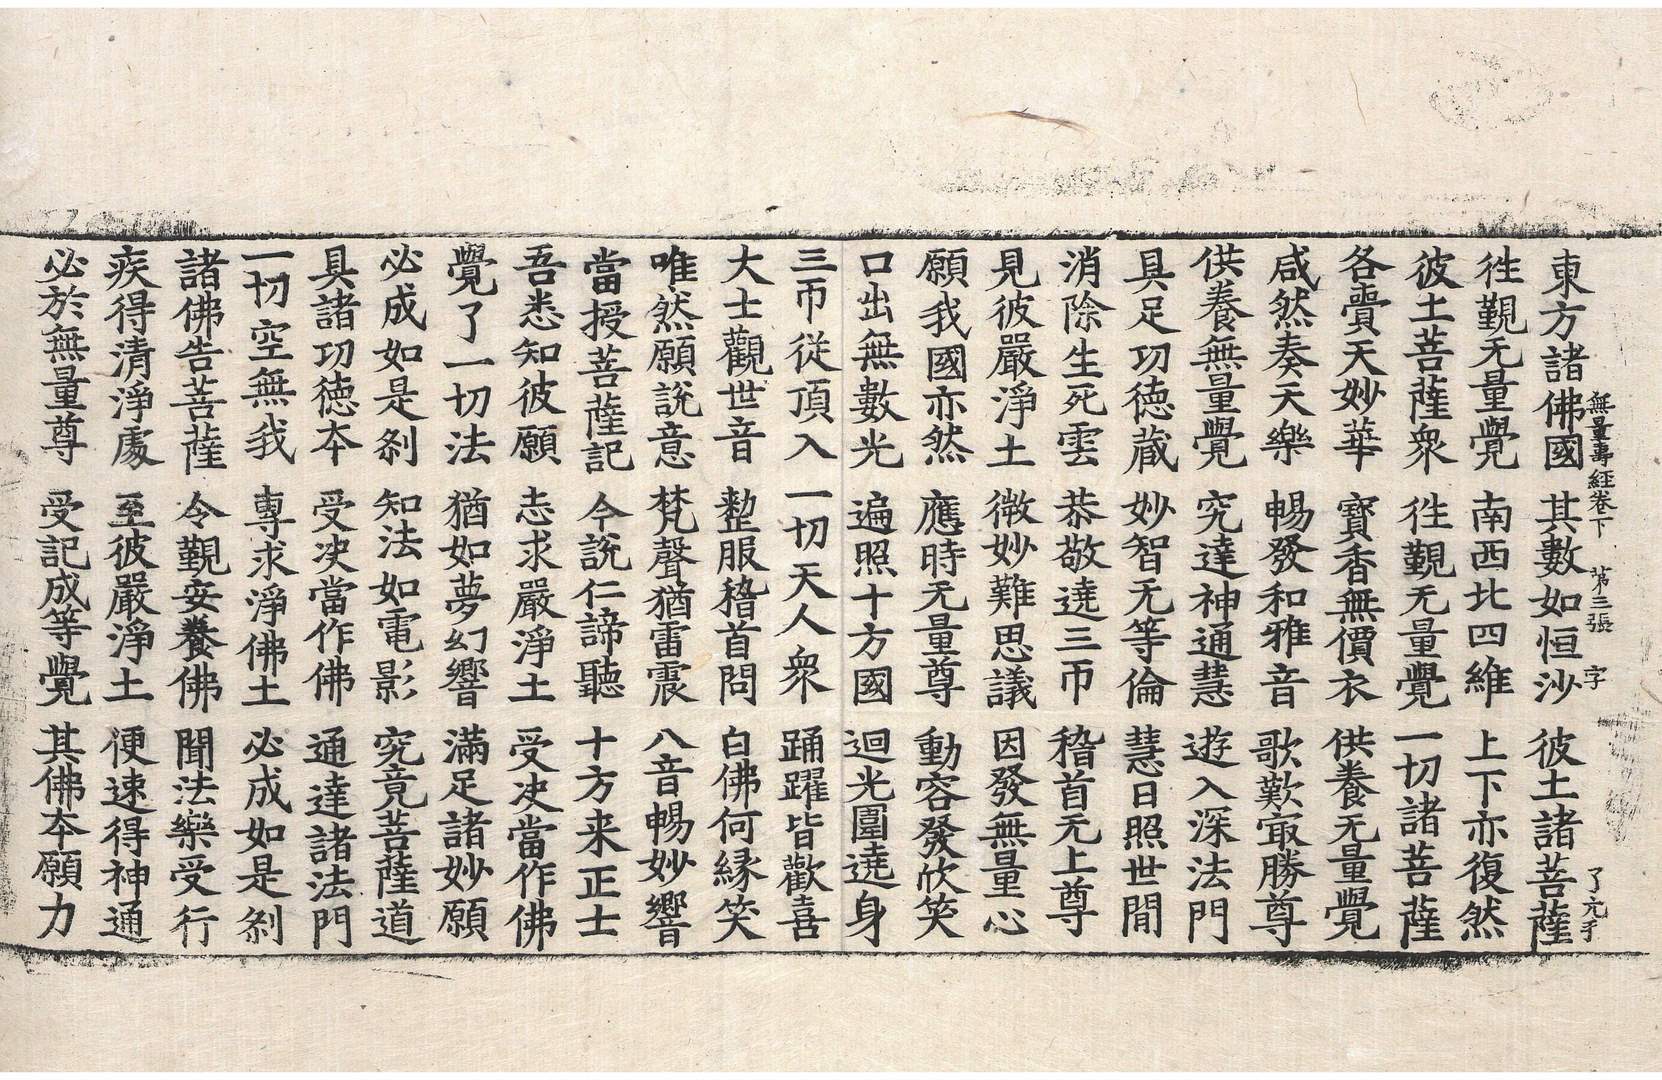 無量壽經卷下 第三張 字 了元手
東方諸佛國 其數如恒沙 彼土諸菩薩
徃覲无量覺 南西北四維 上下亦復然
彼土菩薩衆 徃覲无量覺 一切諸菩薩
各賷天妙華 寳香無價衣 供養无量覺
咸然奏天樂 暢發和雅音 歌歎㝡勝尊
供養無量覺 究達神通慧 遊入深法門
具足功德藏 妙智无等倫 慧日照世間
消除生死雲 恭敬遶三帀 稽首无上尊
見彼嚴淨土 微妙難思議 因發無量心
願我國亦然 應時无量尊 動容發欣笑
口出無數光 遍照十方國 迴光圍遶身
三帀從頂入 一切天人衆 踊躍皆歡喜
大士觀世音 整服稽首問 白佛何縁笑
唯然願說意 梵聲猶雷震 八音暢妙響
當授菩薩記 今說仁諦聽 十方来正士
吾悉知彼願 志求嚴淨土 受决當作佛
覺了一切法 猶如夢幻響 滿足諸妙願
必成如是刹 知法如電影 究竟菩薩道
具諸功德夲 受决當作佛 通達諸法門
一切空無我 專求淨佛土 必成如是刹
諸佛告菩薩 令覲安養佛 聞法樂受行
疾得清淨處 至彼嚴淨土 便速得神通
必於無量尊 受記成等覺 其佛夲願力